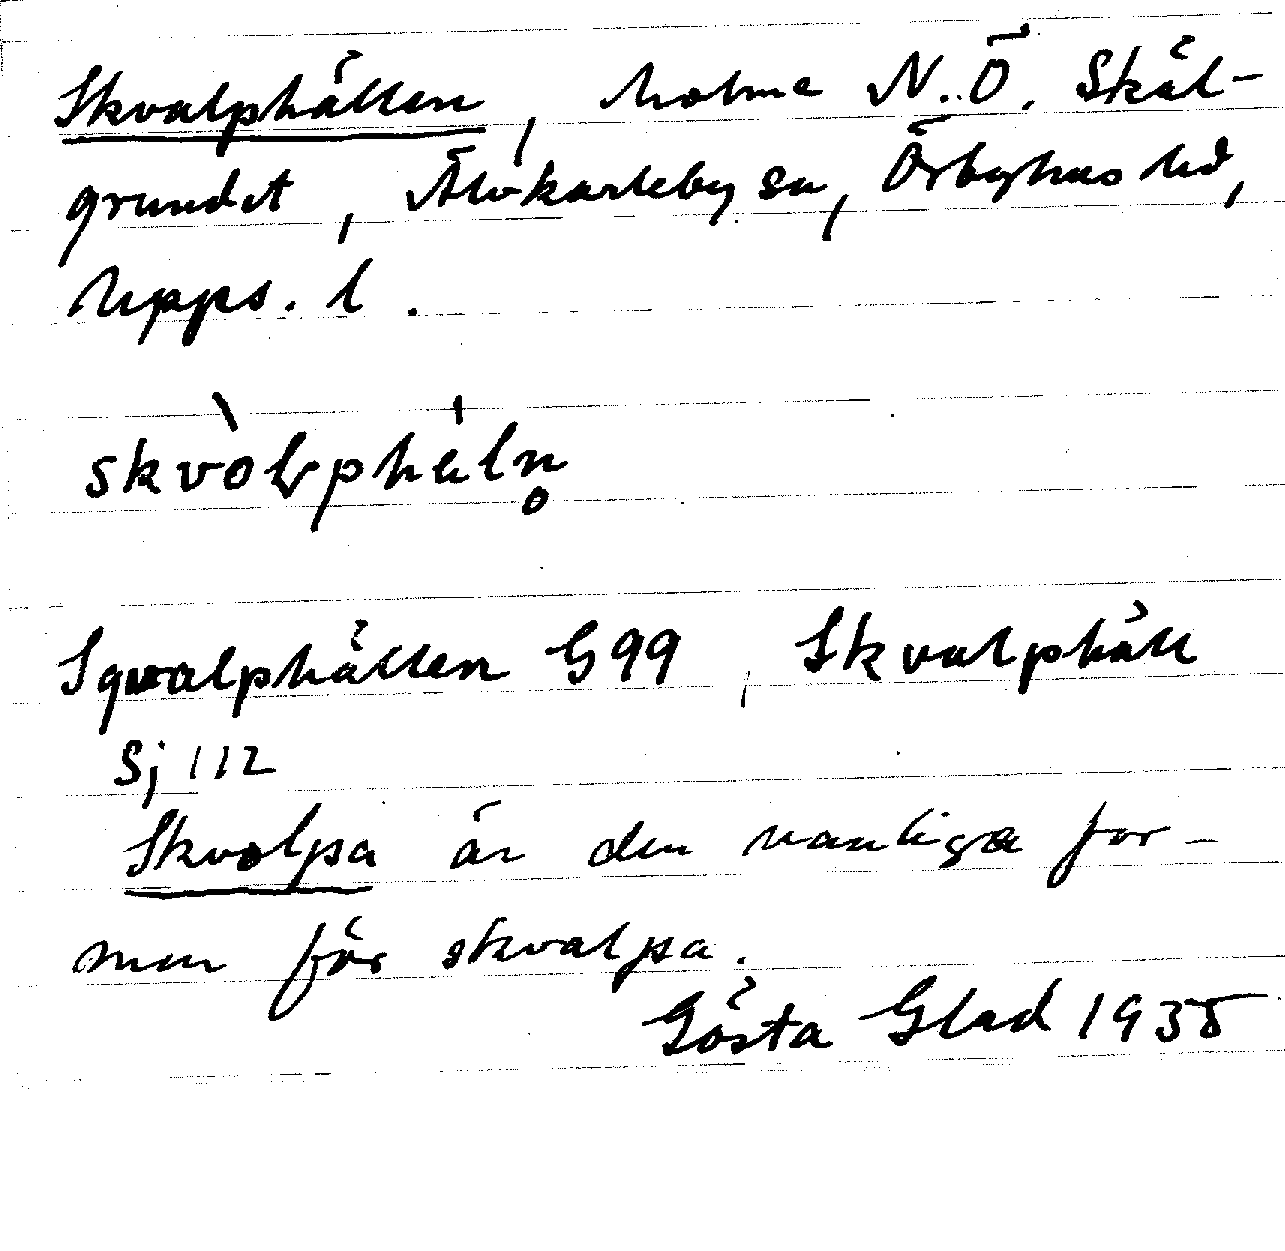 Skvalphällen, holme N.Ö. Skäl-
grundet, Älvkarleby sn, Örbyhus hd,
Upps. l.
skvòlphä̍ln̥
Sqvalphällen G99, Skvalphäll
Sj 112
Skvolpa är den vanliga for-
men för skvalpa.
Gösta Glad 1935